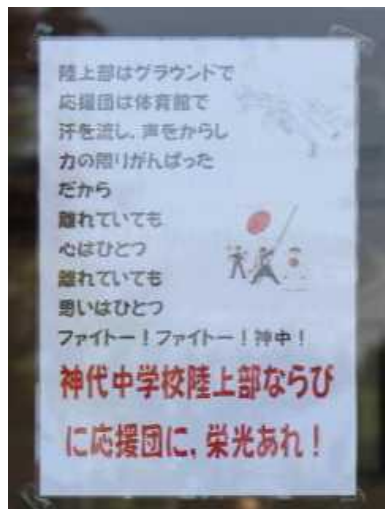 陸上部はグラウンドで
応援団は体育館で
汗を流し、声をからし
力の限りがんばった
だから
離れていても
心はひとつ
離れていても
思いはひとつ
ファイトー!ファイトー!神中!
神代中学校陸上部ならび
に応援団に、栄光あれ!